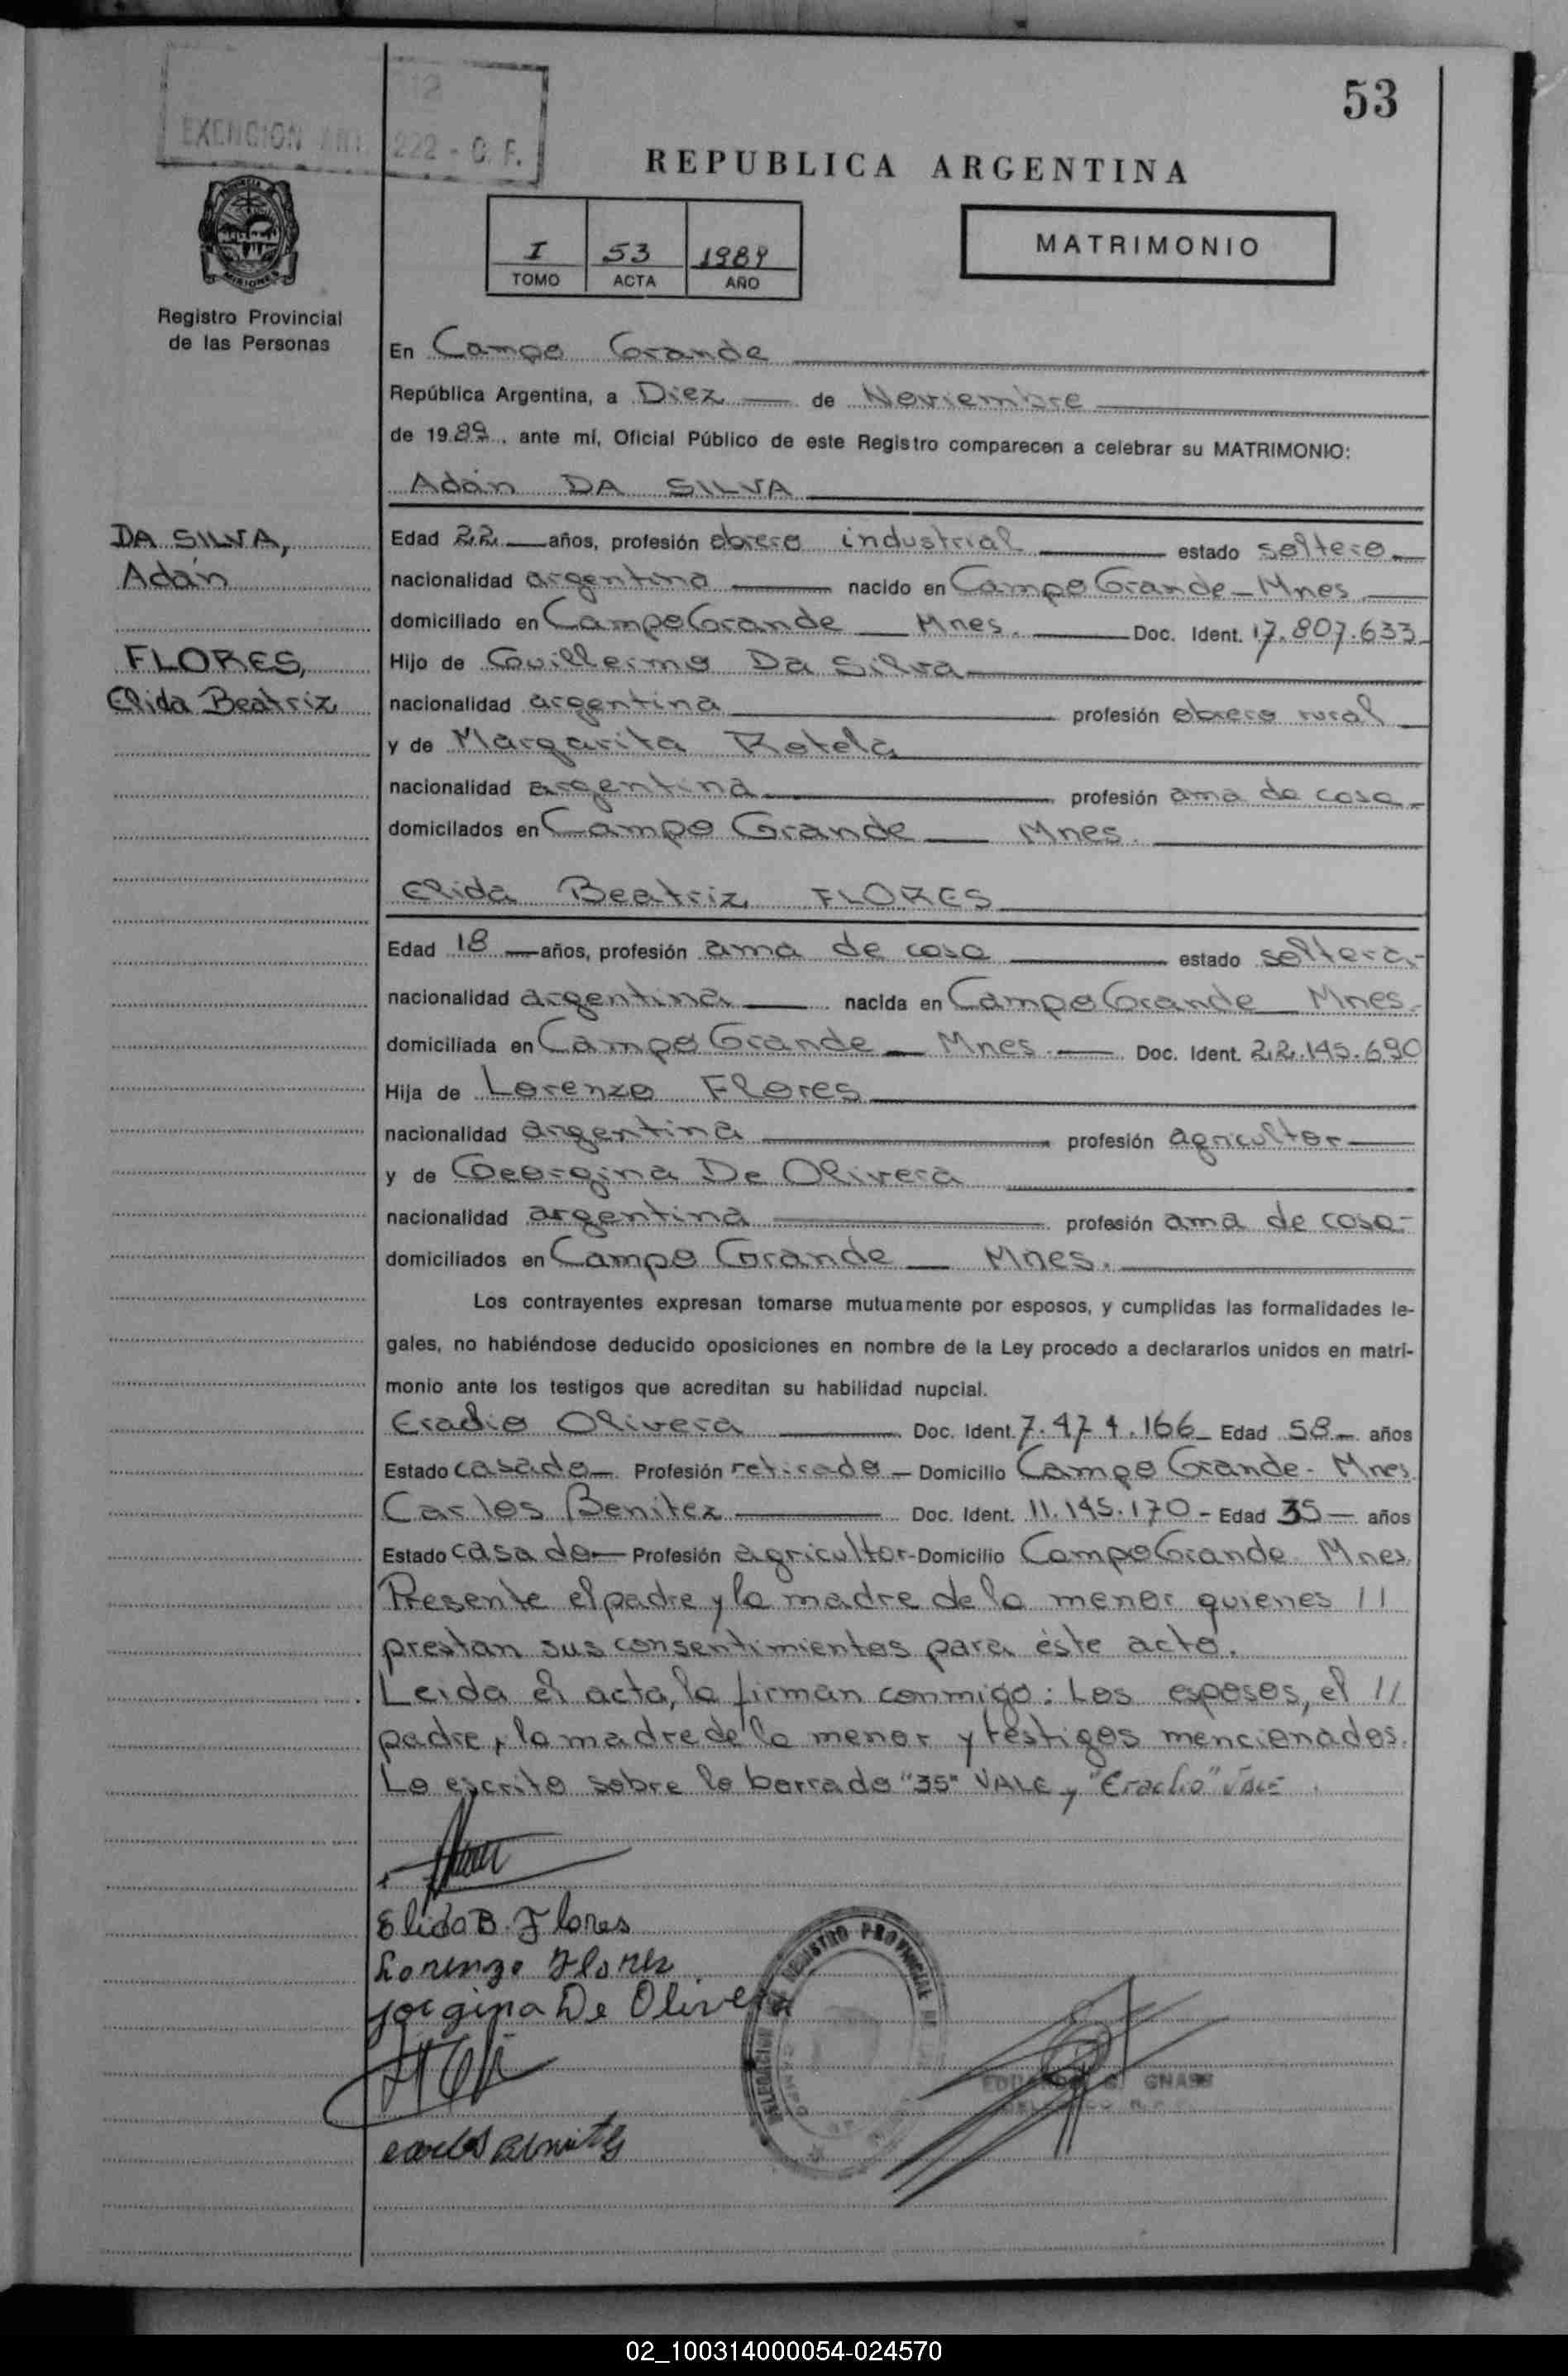 53
EXENCION ART. 222 - C. F.
REPUBLICA ARGENTINA
I 53 1989
TOMO ACTA AÑO
MATRIMONIO
MISIONES
Registro Provincial
de las Personas
En Campo Grande
República Argentina, a Diez de Noviembre
de 1989, ante mí, Oficial Público de este Registro comparecen a celebrar su MATRIMONIO:
Adán DA SILVA
DA SILVA,
Adán
FLORES,
Elida Beatriz
Edad 22 años, profesión obrero industrial estado soltero
nacionalidad argentina nacido en Campo Grande - Mnes
domiciliado en Campo Grande Mnes. Doc. Ident. 17.807.633
Hijo de Guillermo Da Silva
nacionalidad argentina profesión obrero rural
y de Margarita Rotela
nacionalidad argentina profesión ama de casa
domiciliados en Campo Grande Mnes.
Elida Beatriz FLORES
Edad 18 años, profesión ama de casa estado soltera
nacionalidad argentina nacida en Campo Grande Mnes.
domiciliada en Campo Grande Mnes. Doc. Ident. 22.145.690
Hija de Lorenzo Flores
nacionalidad argentina profesión agricultor
y de Georgina De Olivera
nacionalidad argentina profesión ama de casa
domiciliados en Campo Grande Mnes.
Los contrayentes expresan tomarse mutuamente por esposos, y cumplidas las formalidades le-
gales, no habiéndose deducido oposiciones en nombre de la Ley procedo a declararlos unidos en matri-
monio ante los testigos que acreditan su habilidad nupcial.
Eradio Olivera Doc. Ident. 7.474.166 Edad 58 años
Estado casado Profesión retirado Domicilio Campo Grande - Mnes
Carlos Benitez Doc. Ident. 11.145.170 - Edad 35 años
Estado casado Profesión agricultor - Domicilio Campo Grande Mnes
Presente el padre y la madre de la menor quienes //
prestan sus consentimientos para éste acto.
Leida el acta, la firman conmigo: Los esposos, el //
padre, la madre de la menor y testigos mencionados.
Lo escrito sobre lo borrado "35" VALE y "Eradio" VALE
Elida B. Flores
Lorenzo Flores
Jorgina De Olivera
Carlos Benitez
REGISTRO PROVINCIAL DE
DELEGACION
GNASS
02_100314000054-024570